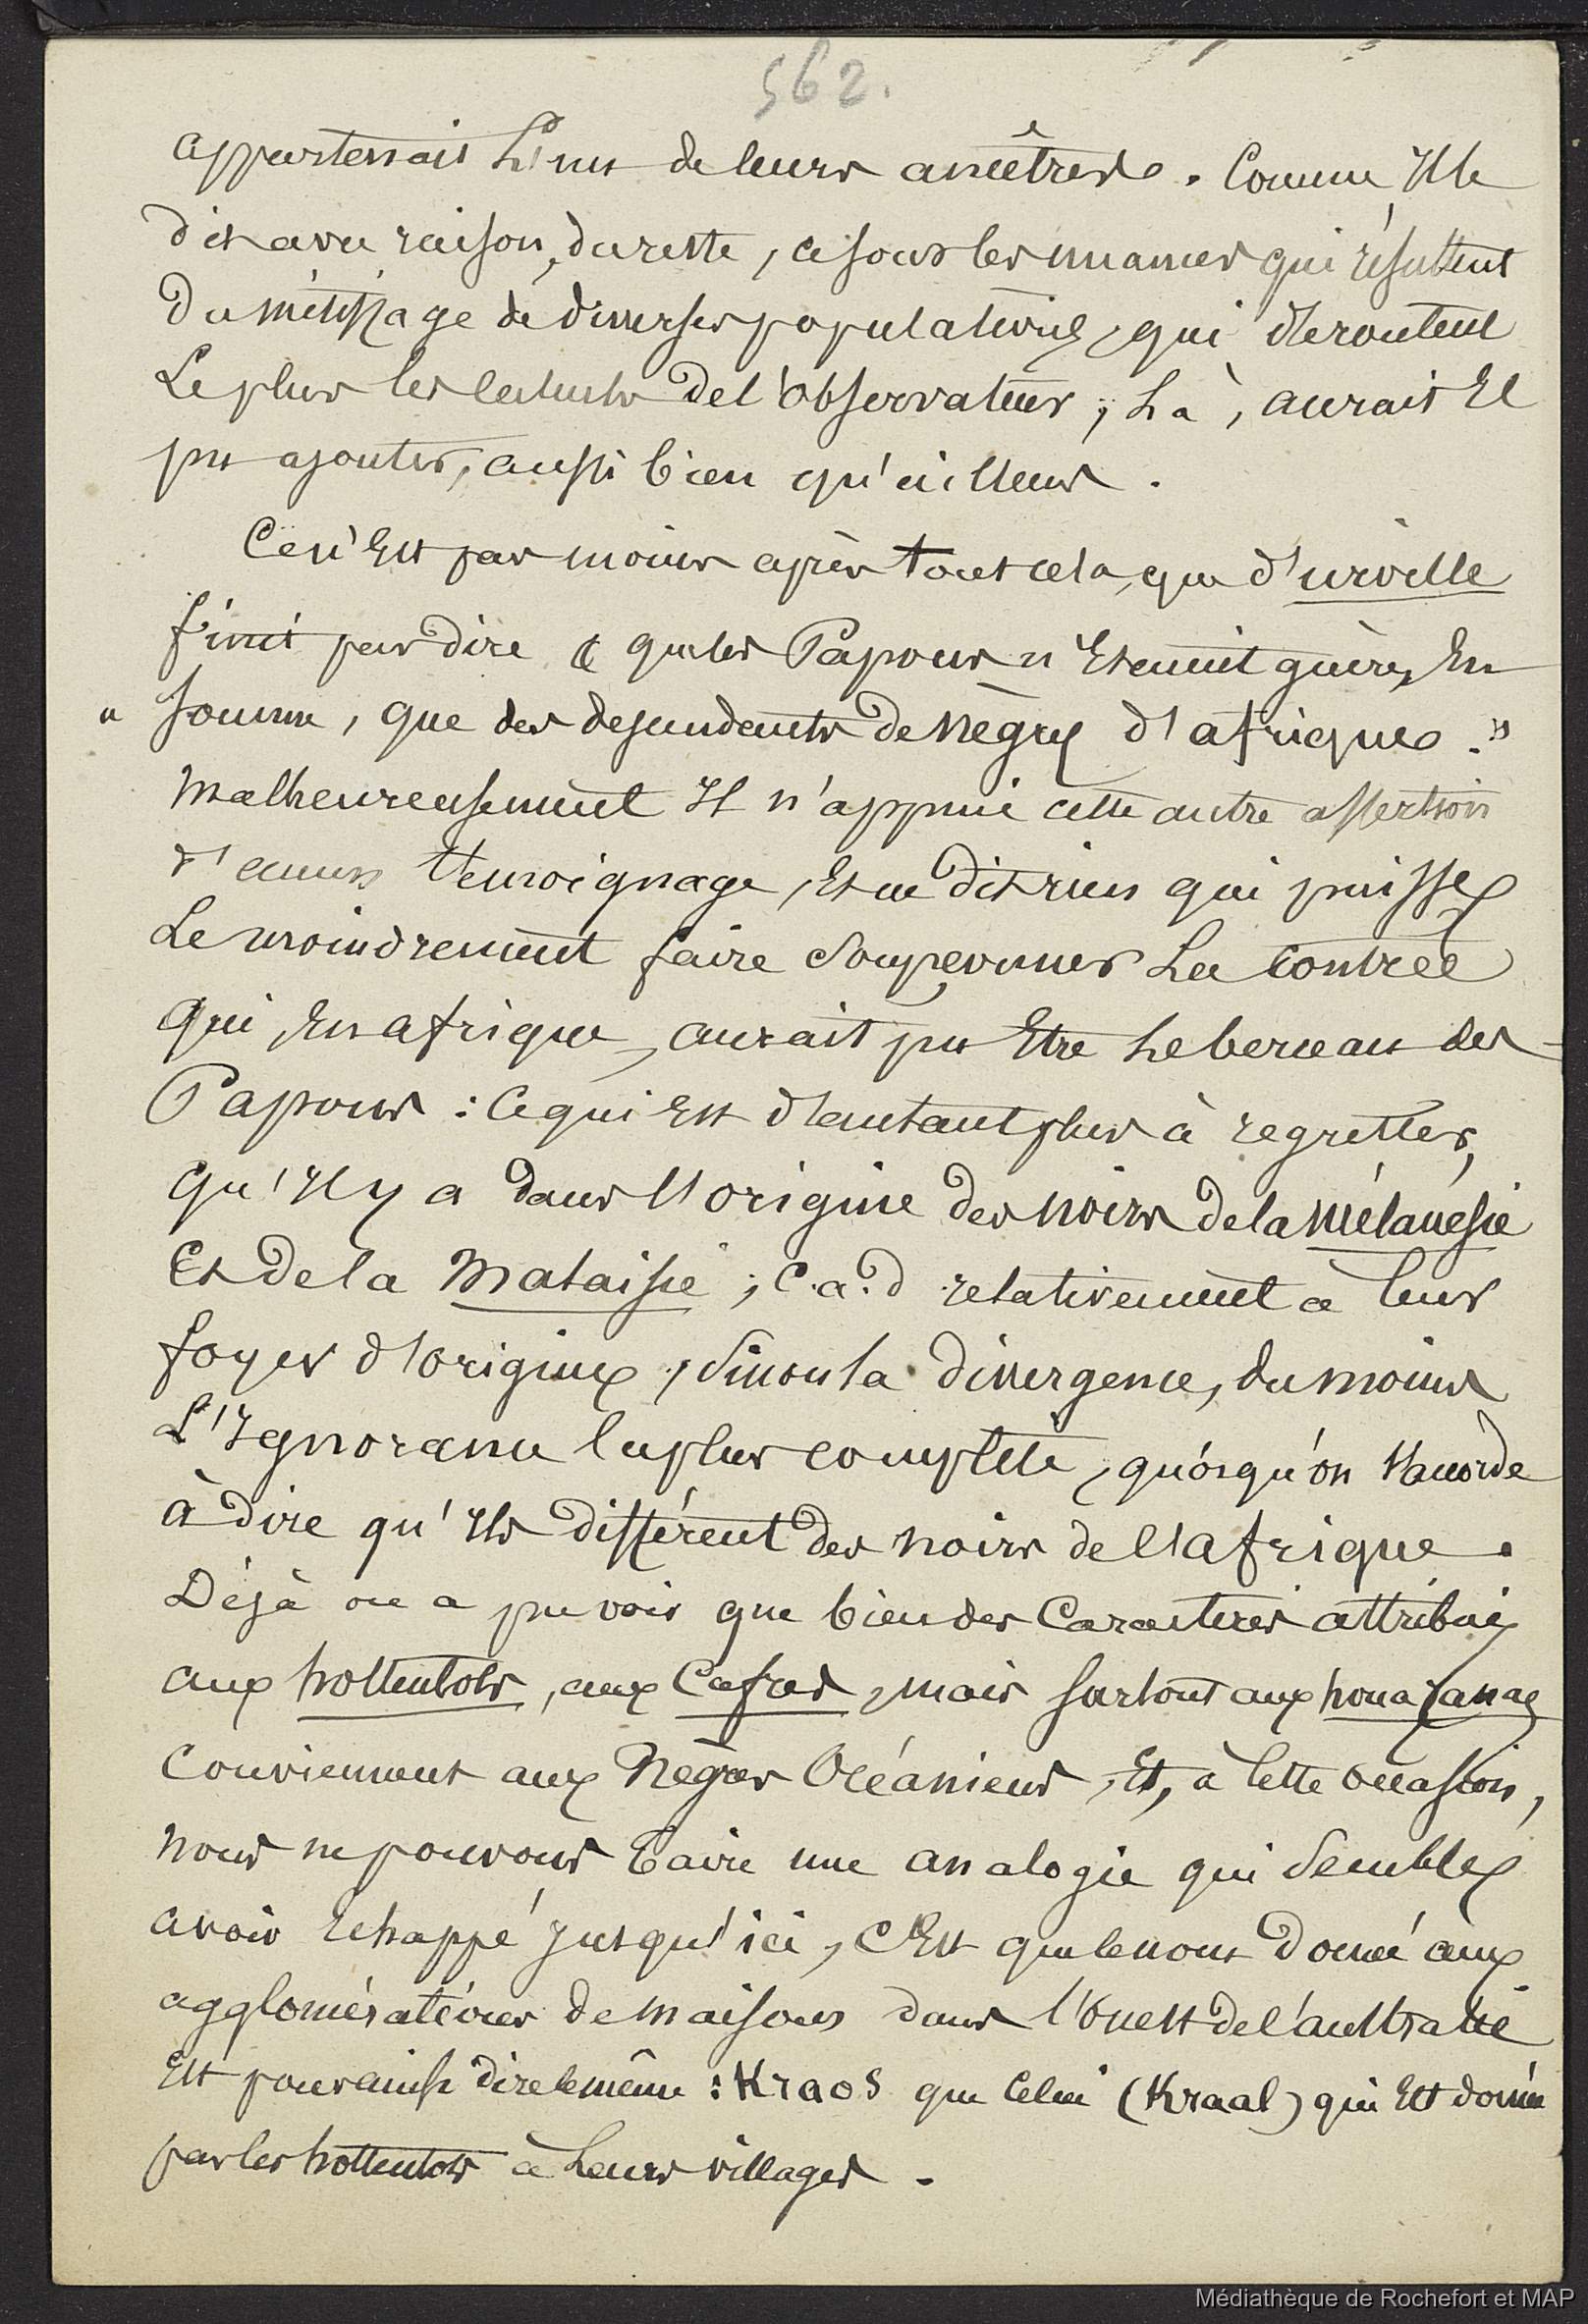 562.
appartenait L'un de leurs ancêtres. Comme Il le
dit avec raison, du reste, ce sont les nuances qui résultent
du métissage de diverses populations, qui déroutent
Le plus les calculs de l'observateur; Là, aurait Il
pu ajouter, aussi bien qu'ailleurs.
Ce n'Est pas moins après tout cela, que d'urville
finit par dire « que les Papous n'Etaient guère, En
« somme, que des descendants de nègres d'afrique. »
Malheureusement Il n'appuie cette autre assertion
d'aucun témoignage, Et ne dit rien qui puisse
Le moindrement faire soupçonner La contrée
qui, En afrique, aurait pu Etre Le berceau des
Papous: Ce qui Est d'autant plus à regretter,
qu'Il y a dans l'origine des noirs de la mélanésie
Et de la Malaisie; c.a.d relativement à leur
foyer d'origine, sinon la divergence, du moins
L'Ignorance la plus complète, quoiqu'on s'accorde
à dire qu'Ils diffèrent des noirs de l'afrique.
Déjà on a pu voir que bien des Caractères attribués
aux hottentots, aux Cafres, mais surtout aux houazanas
conviennent aux Nègres Océaniens, Et, à cette occasion,
nous ne pouvons taire une analogie qui semble
avoir Echappé jusqu'ici, C'Est que le nom donné aux
agglomérations de maisons dans l'ouest de l'australie
Est pour ainsi dire le même: Kraos que celui (Kraal) qui Est donné
par les hottentots à Leurs villages.
Médiathèque de Rochefort et MAP